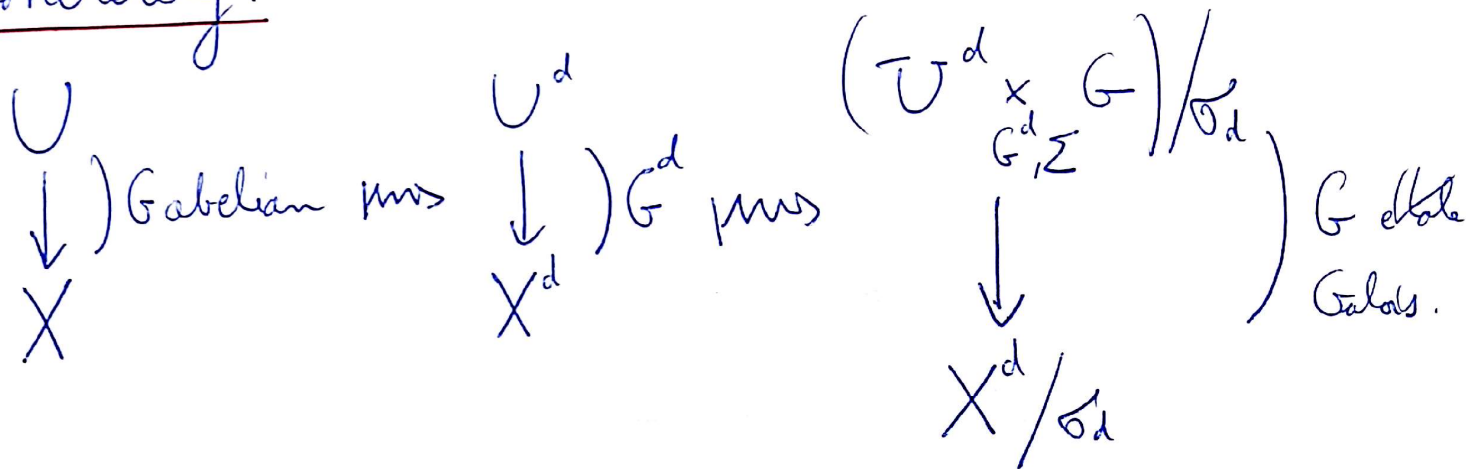 U
↓ ) G abelian
X
U^d
↓ ) G^d
X^d
(U^d ×_{G^d,Σ} G)/σ_d
↓ ) G étale Galois.
X^d/σ_d